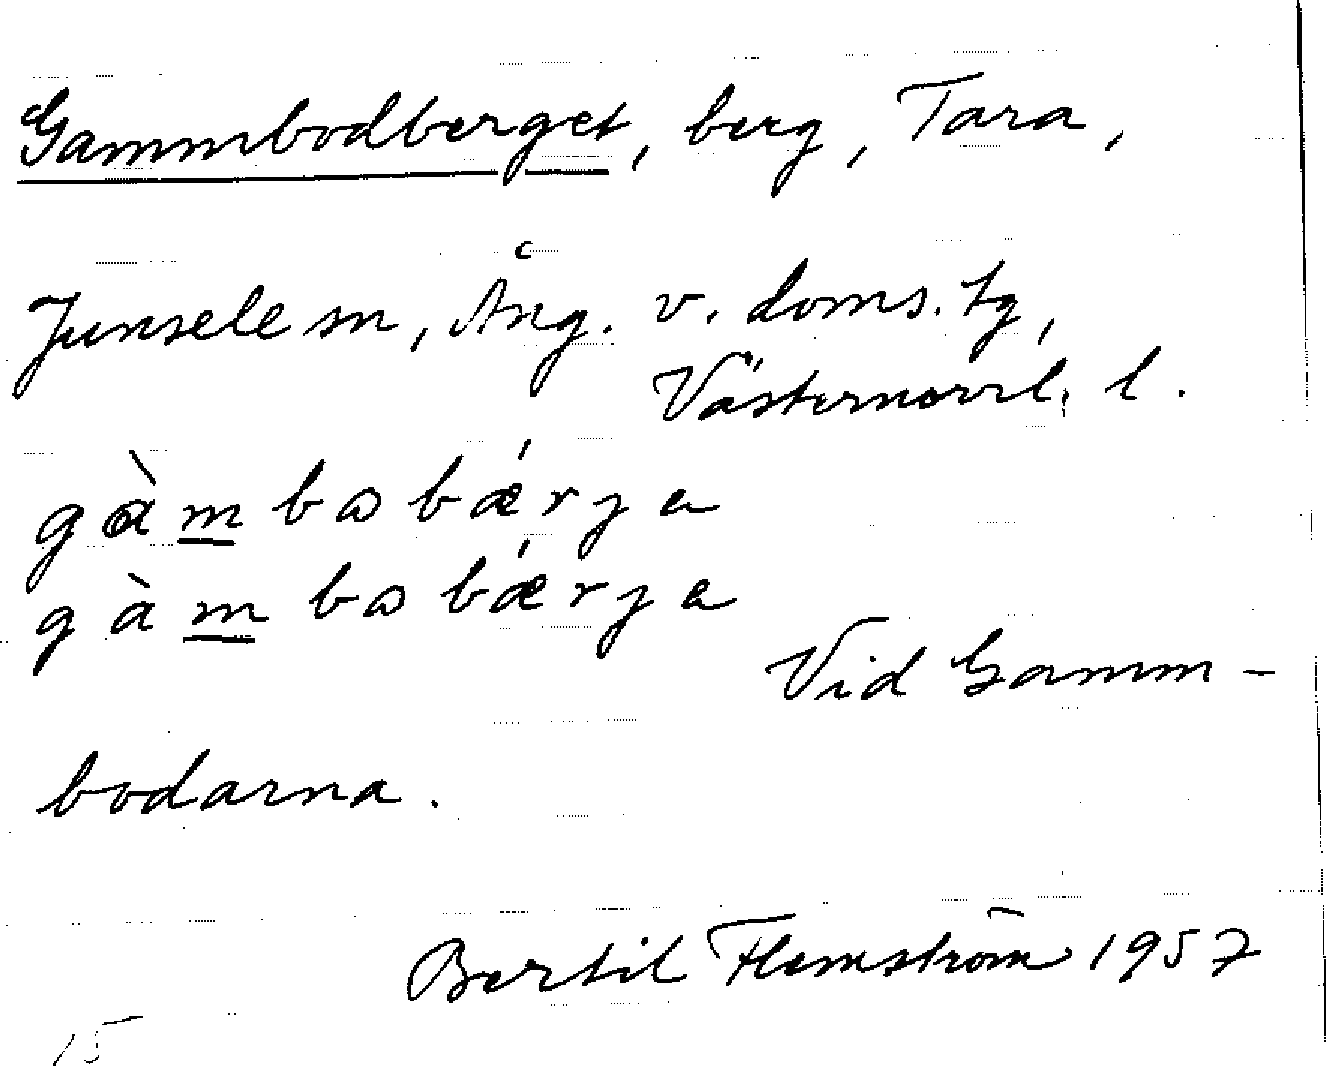 Gammbodberget, berg, Tara,
Junsele sn, Ång. v. doms. tg,
Västernorrl. l.
gàm bɷ bǽrjɐ
gàm bɷ bǽrjɐ
Vid Gamm-
bodarna.
Bertil Flemström 1957
15